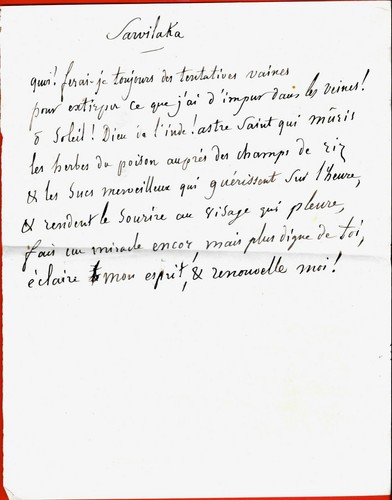 Sarvilaka
quoi! ferai-je toujours des tentatives vaines
pour extirper ce que j'ai d'impur dans les veines!
ô Soleil! Dieu de l'inde! astre Saint qui mûris
les herbes du poison auprés des champs de riz
& les Sucs merveilleux qui guérissent Sur l'heure,
& rendent le Sourire au visage qui pleure,
fais un miracle encor, mais plus digne de toi,
éclaire mon esprit, & renouvelle moi!